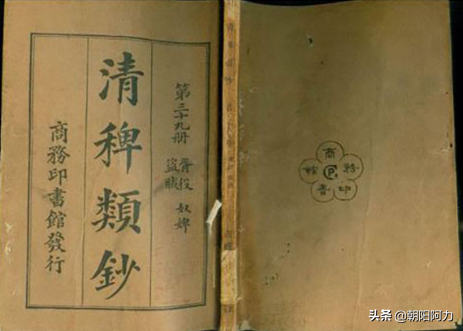 第三十九冊
胥役 奴婢
盜賊
清稗類鈔
商務印書館發行
商務印書館
头条 @朝阳阿力